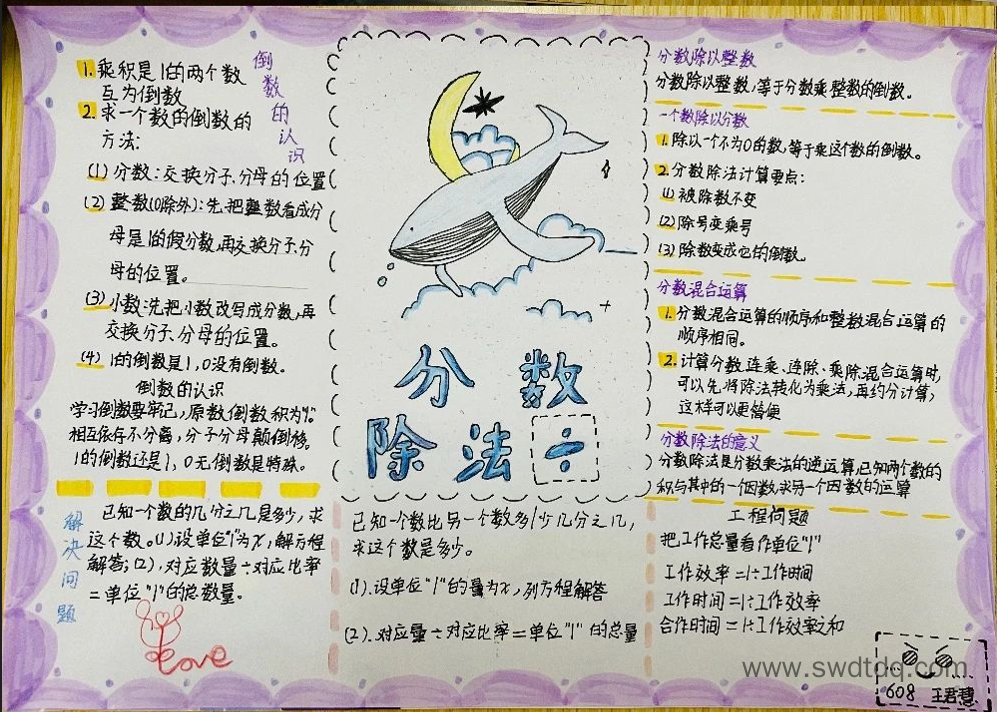 倒数的认识
1. 乘积是1的两个数
互为倒数
2. 求一个数的倒数的
方法:
(1) 分数:交换分子、分母的位置
(2) 整数(0除外):先把整数看成分
母是1的假分数,再交换分子、分
母的位置。
(3) 小数:先把小数改写成分数,再
交换分子、分母的位置。
(4) 1的倒数是1,0没有倒数。
倒数的认识
学习倒数要牢记,原数倒数积为"1"。
相互依存不分离,分子分母颠倒移。
1的倒数还是1,0无倒数是特殊。
解决问题
已知一个数的几分之几是多少,求
这个数。(1)设单位"1"为x,解方程
解答;(2),对应数量÷对应比率
=单位"1"的总数量。
Love
分数
除法÷
已知一个数比另一个数多/少几分之几,
求这个数是多少。
(1).设单位"1"的量为x,列方程解答
(2).对应量÷对应比率=单位"1"的总量
分数除以整数
分数除以整数,等于分数乘整数的倒数。
一个数除以分数
1. 除以一个不为0的数,等于乘这个数的倒数。
2. 分数除法计算要点:
(1) 被除数不变
(2) 除号变乘号
(3) 除数变成它的倒数。
分数混合运算
1. 分数混合运算的顺序和整数混合运算的
顺序相同。
2. 计算分数连乘、连除、乘除混合运算时,
可以先将除法转化为乘法,再约分计算,
这样可以更简便
分数除法的意义
分数除法是分数乘法的逆运算,已知两个数的
积与其中的一个因数,求另一个因数的运算
工程问题
把工作总量看作单位"1"
工作效率=1÷工作时间
工作时间=1÷工作效率
合作时间=1÷工作效率之和
www.swdtdq.com
608 王君慧